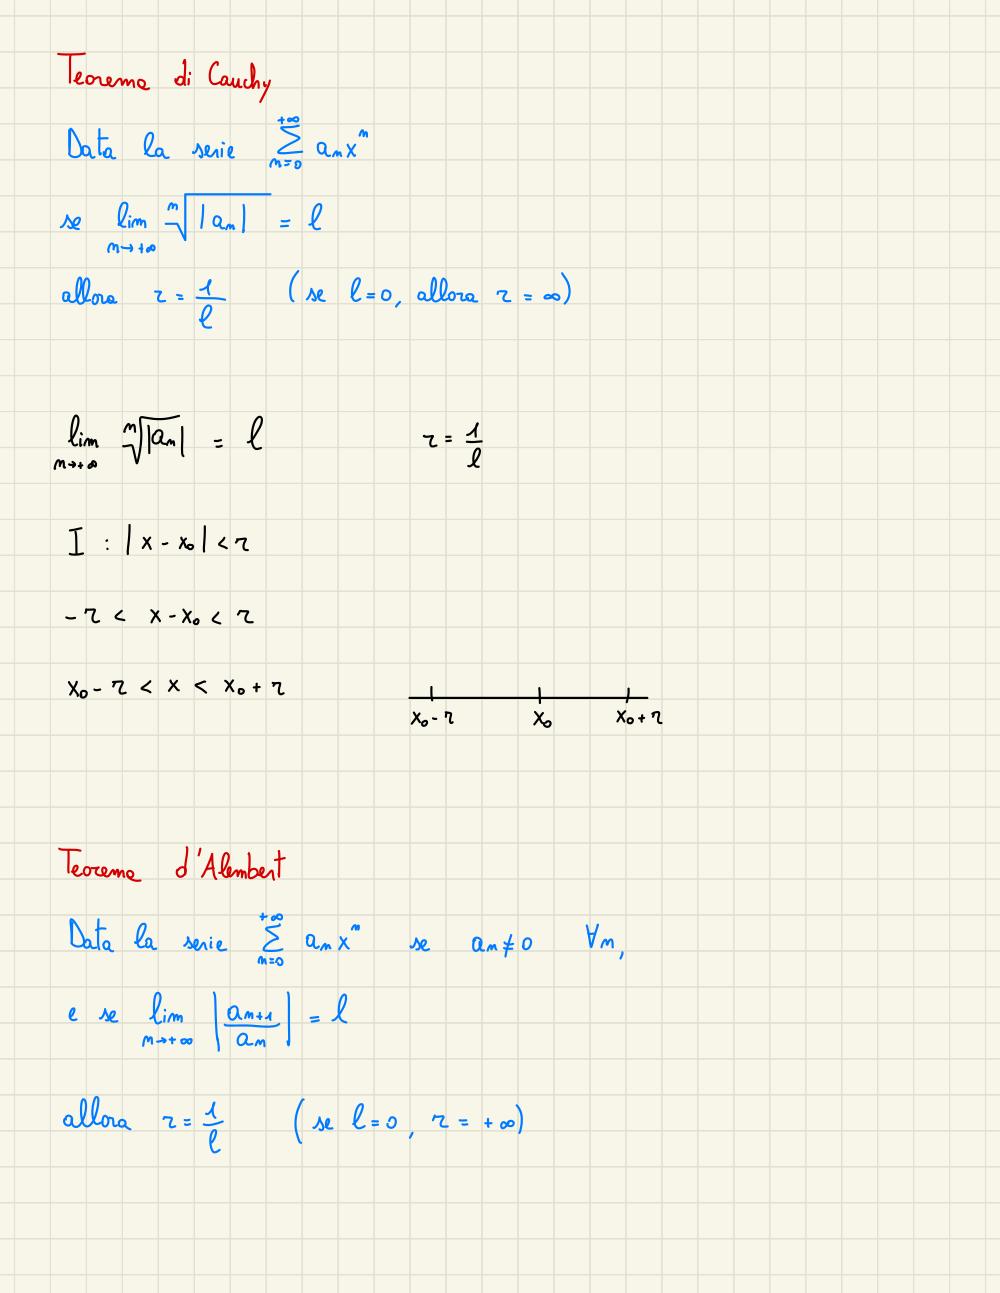 Teorema di Cauchy
Data la serie \sum_{n=0}^{+\infty} a_n x^n
se \lim_{n \to +\infty} \sqrt[n]{|a_n|} = l
allora r = \frac{1}{l} (se l = 0, allora r = ∞)
\lim_{n \to +\infty} \sqrt[n]{|a_n|} = l r = \frac{1}{l}
I : |x - x_0| < r
-r < x - x_0 < r
x_0 - r < x < x_0 + r
x_0 - r x_0 x_0 + r
Teorema d'Alembert
Data la serie \sum_{n=0}^{+\infty} a_n x^n se a_n ≠ 0 ∀n,
e se \lim_{n \to +\infty} \left|\frac{a_{n+1}}{a_n}\right| = l
allora r = \frac{1}{l} (se l = 0, r = +∞)